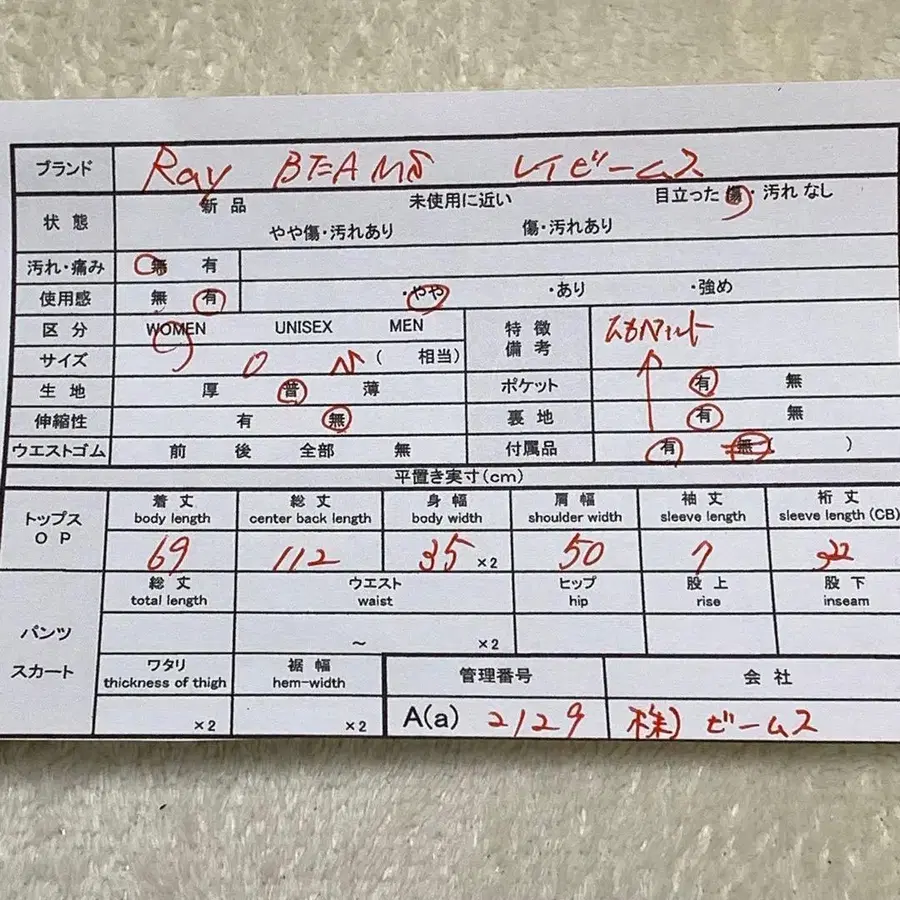 ブランド Ray BEAMS レイビームス
状態 新品 未使用に近い 目立った傷・汚れ なし
やや傷・汚れあり 傷・汚れあり
汚れ・痛み 無 有
使用感 無 有 ・やや ・あり ・強め
区分 WOMEN UNISEX MEN
特徴
備考
サイズ 0 ( 相当)
生地 厚 普 薄 ポケット 有 無
伸縮性 有 無 裏地 有 無
ウエストゴム 前 後 全部 無 付属品 有 無 ( )
平置き実寸(cm)
トップス
OP
着丈 総丈 身幅 肩幅 袖丈 裄丈
body length center back length body width shoulder width sleeve length sleeve length (CB)
69 112 35 ×2 50 7 32
パンツ
スカート
総丈 ウエスト ヒップ 股上 股下
total length waist hip rise inseam
～ ×2
ワタリ 裾幅 管理番号 会社
thickness of thigh hem-width
×2 ×2 A(a) 2129 株) ビームス